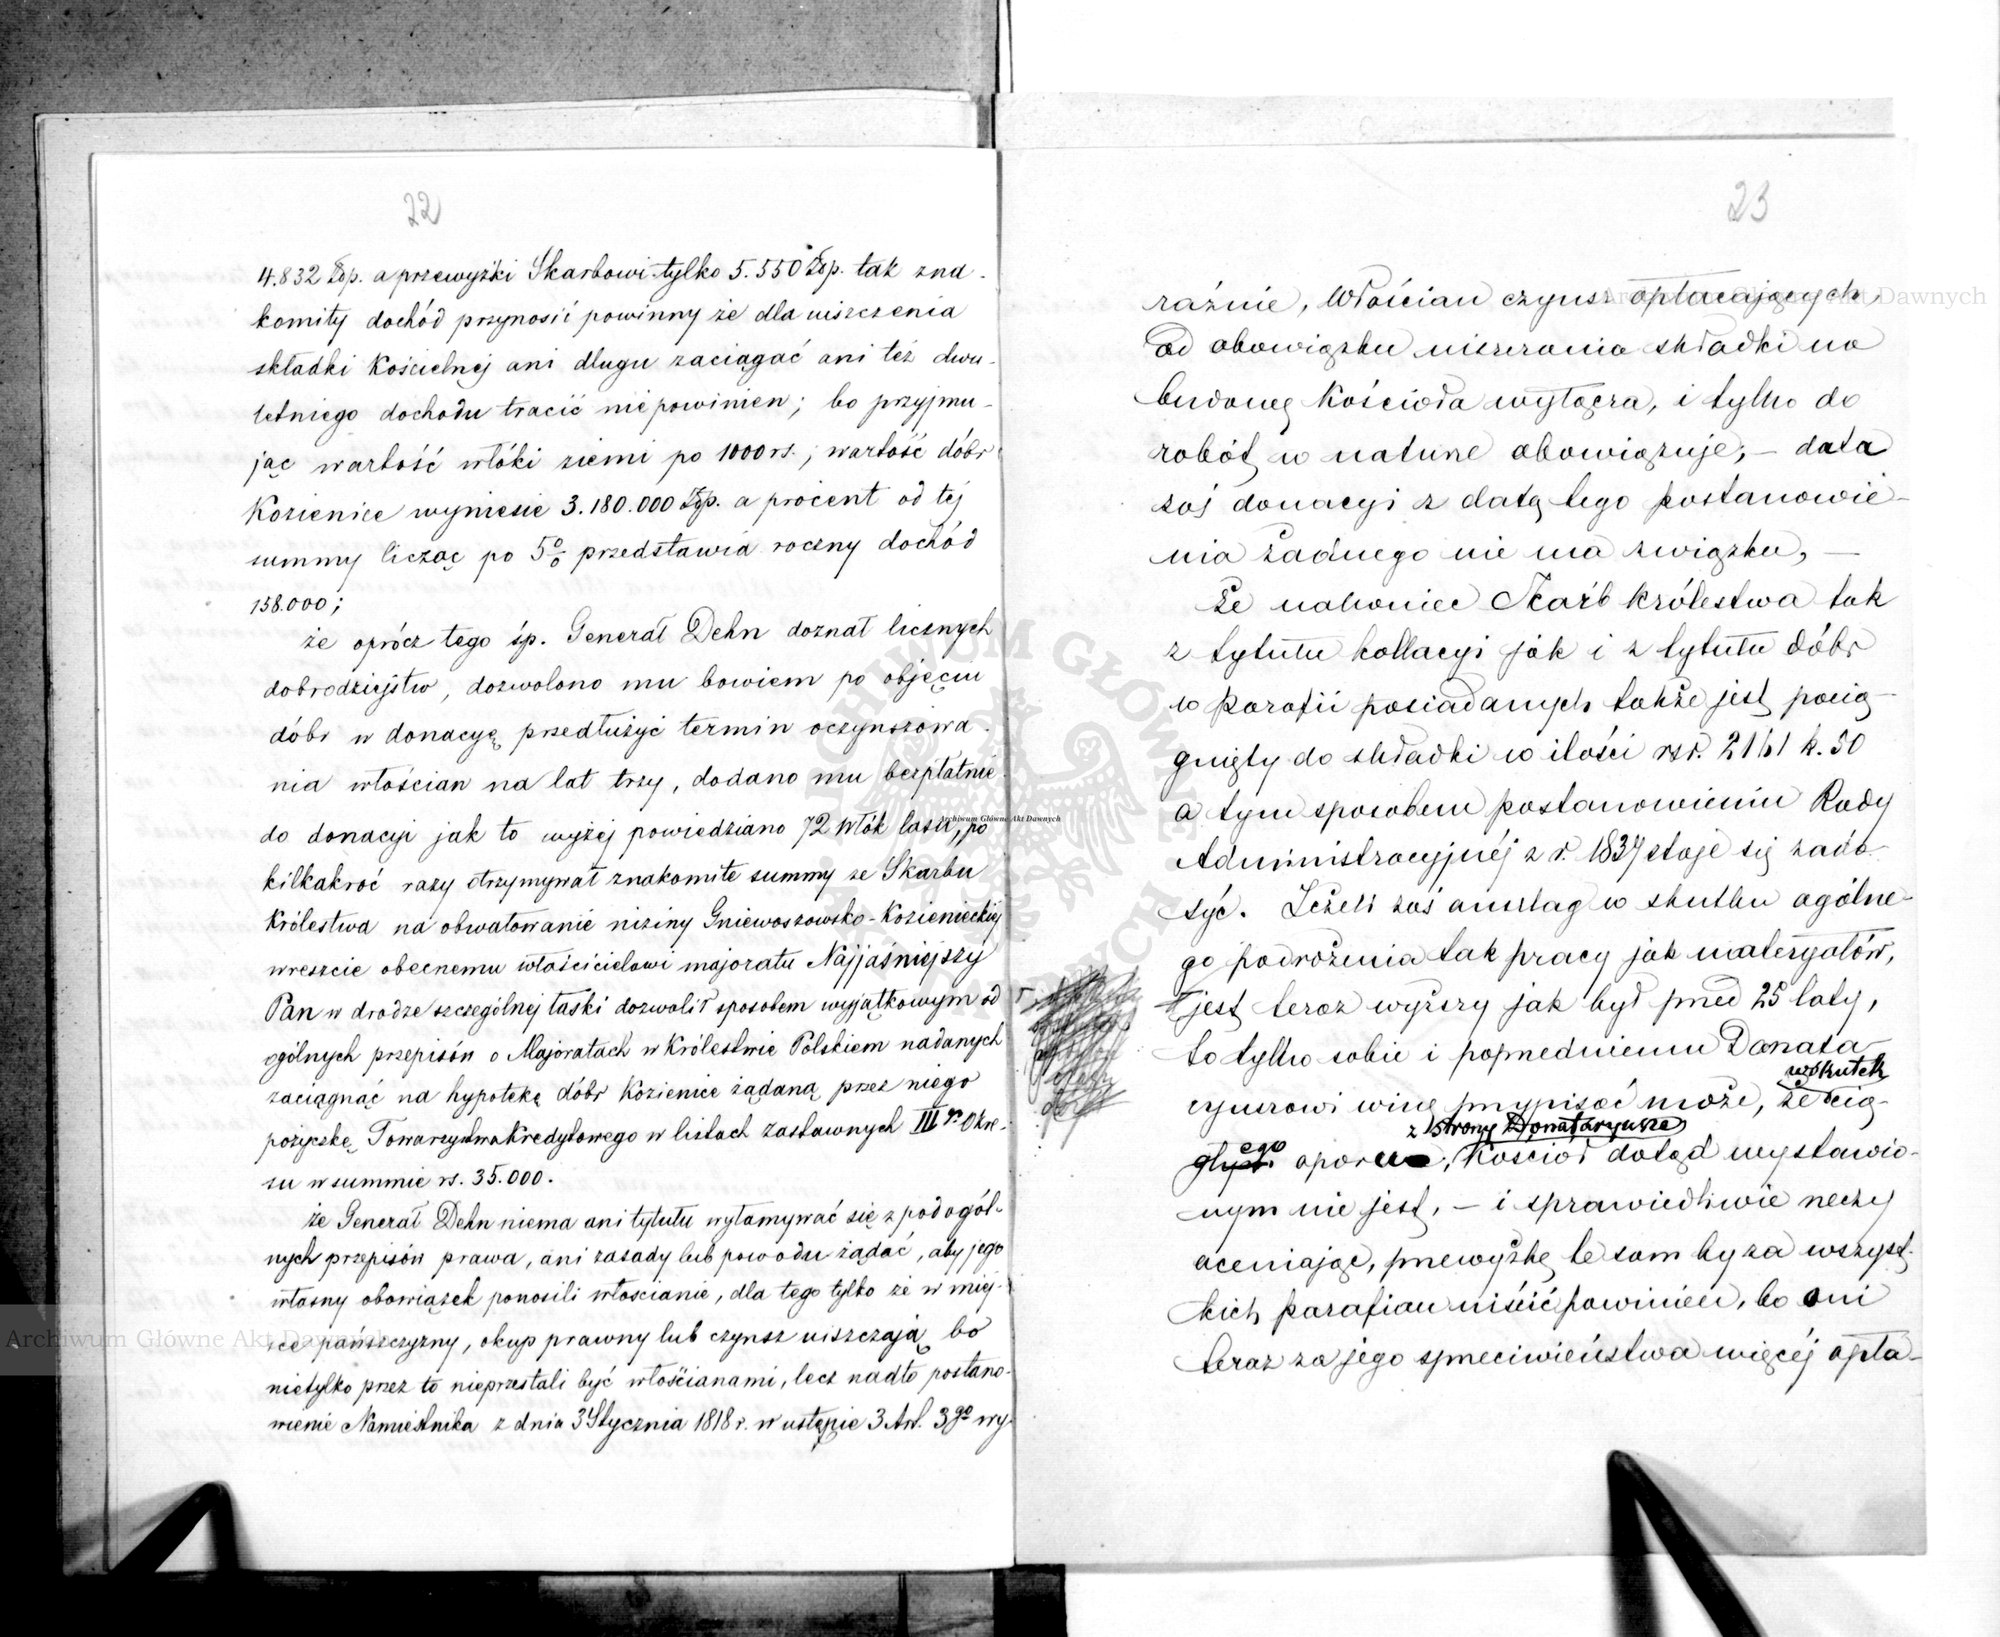 22
4.832 Złp. a przewyżki Skarbowi tylko 5.550 Złp. tak zna-
komity dochód przynosić powinny że dla uiszczenia
składki Kościelnej ani długu zaciągać ani też dwu-
letniego dochodu tracić niepowinien; bo przyjmu-
jąc wartość włóki ziemi po 1000 rs.; wartość dóbr
Kozienice wyniesie 3.180.000 Złp. a procent od tej
summy licząc po 5% przedstawia roczny dochód
158.000;
że oprócz tego śp. Generał Dehn doznał licznych
dobrodziejstw, dozwolono mu bowiem po objęciu
dóbr w donacyę przedłużyć termin oczynszowa-
nia włościan na lat trzy, dodano mu bezpłatnie
do donacyi jak to wyżej powiedziano 72 włók lasu, po
kilkakroć razy otrzymywał znakomite summy ze Skarbu
Królestwa na obwałowanie niziny Gniewoszowsko-Kozienieckiej
wreszcie obecnemu właścicielowi majoratu Najjaśniejszy
Pan w drodze szczególnej łaski dozwolił sposobem wyjątkowym od
ogólnych przepisów o Majoratach w Królestwie Polskiem nadanych
zaciągnąć na hypotekę dóbr Kozienice żądaną przez niego
pożyczkę Towarzystwa Kredytowego w listach zastawnych III go Okre-
su w summie rs. 35.000.
że Generał Dehn niema ani tytułu wyłamywać się z pod ogól-
nych przepisów prawa, ani zasady lub powodu żądać, aby jego
własny obowiązek ponosili włościanie, dla tego tylko że w miej-
sce pańszczyzny, okup prawny lub czynsz uiszczają bo
nietylko przez to nieprzestali być włościanami, lecz nadto postano-
wienie Namiestnika z dnia 3 Stycznia 1818 r. w ustępie 3 Art. 3go wy-
23
raźnie, Włościan czynsz opłacających,
od obowiązku uiszczania składki na
budowę Kościoła wyłącza, i tylko do
robót w naturze obowiązuje; – data
zaś donacyi z datą tego postanowie-
nia żadnego nie ma związku, –
Że nakoniec Skarb Królestwa tak
z tytułu kollacyi jak i z tytułu dóbr
w parafii posiadanych także jest pocią-
gnięty do składki w ilości rsr. 2161 k. 50
a tym sposobem postanowieniu Rady
Administracyjnéj z r. 1837 staje się zado-
syć. Jeżeli zaś anszlag w skutku ogólne-
go podrożenia tak pracy jak materyałów,
jest teraz wyższy jak był przed 25 laty,
to tylko sobie i poprzedniemu Donata-
wskutek
ryuszowi winę przypisać może, że cią-
z strony Donataryusza
głego oporu, Kościoł dotąd wystawio-
nym nie jest, – i sprawiedliwie rzeczy
oceniając, przewyżkę tę sam by za wszyst-
kich parafian uiścić powinien, bo oni
teraz za jego sprzeciwieństwa więcéj opła-
Archiwum Główne Akt Dawnych
Archiwum Główne Akt Dawnych
Archiwum Główne Akt Dawnych
ARCHIWUM GŁÓWNE AKT DAWNYCH